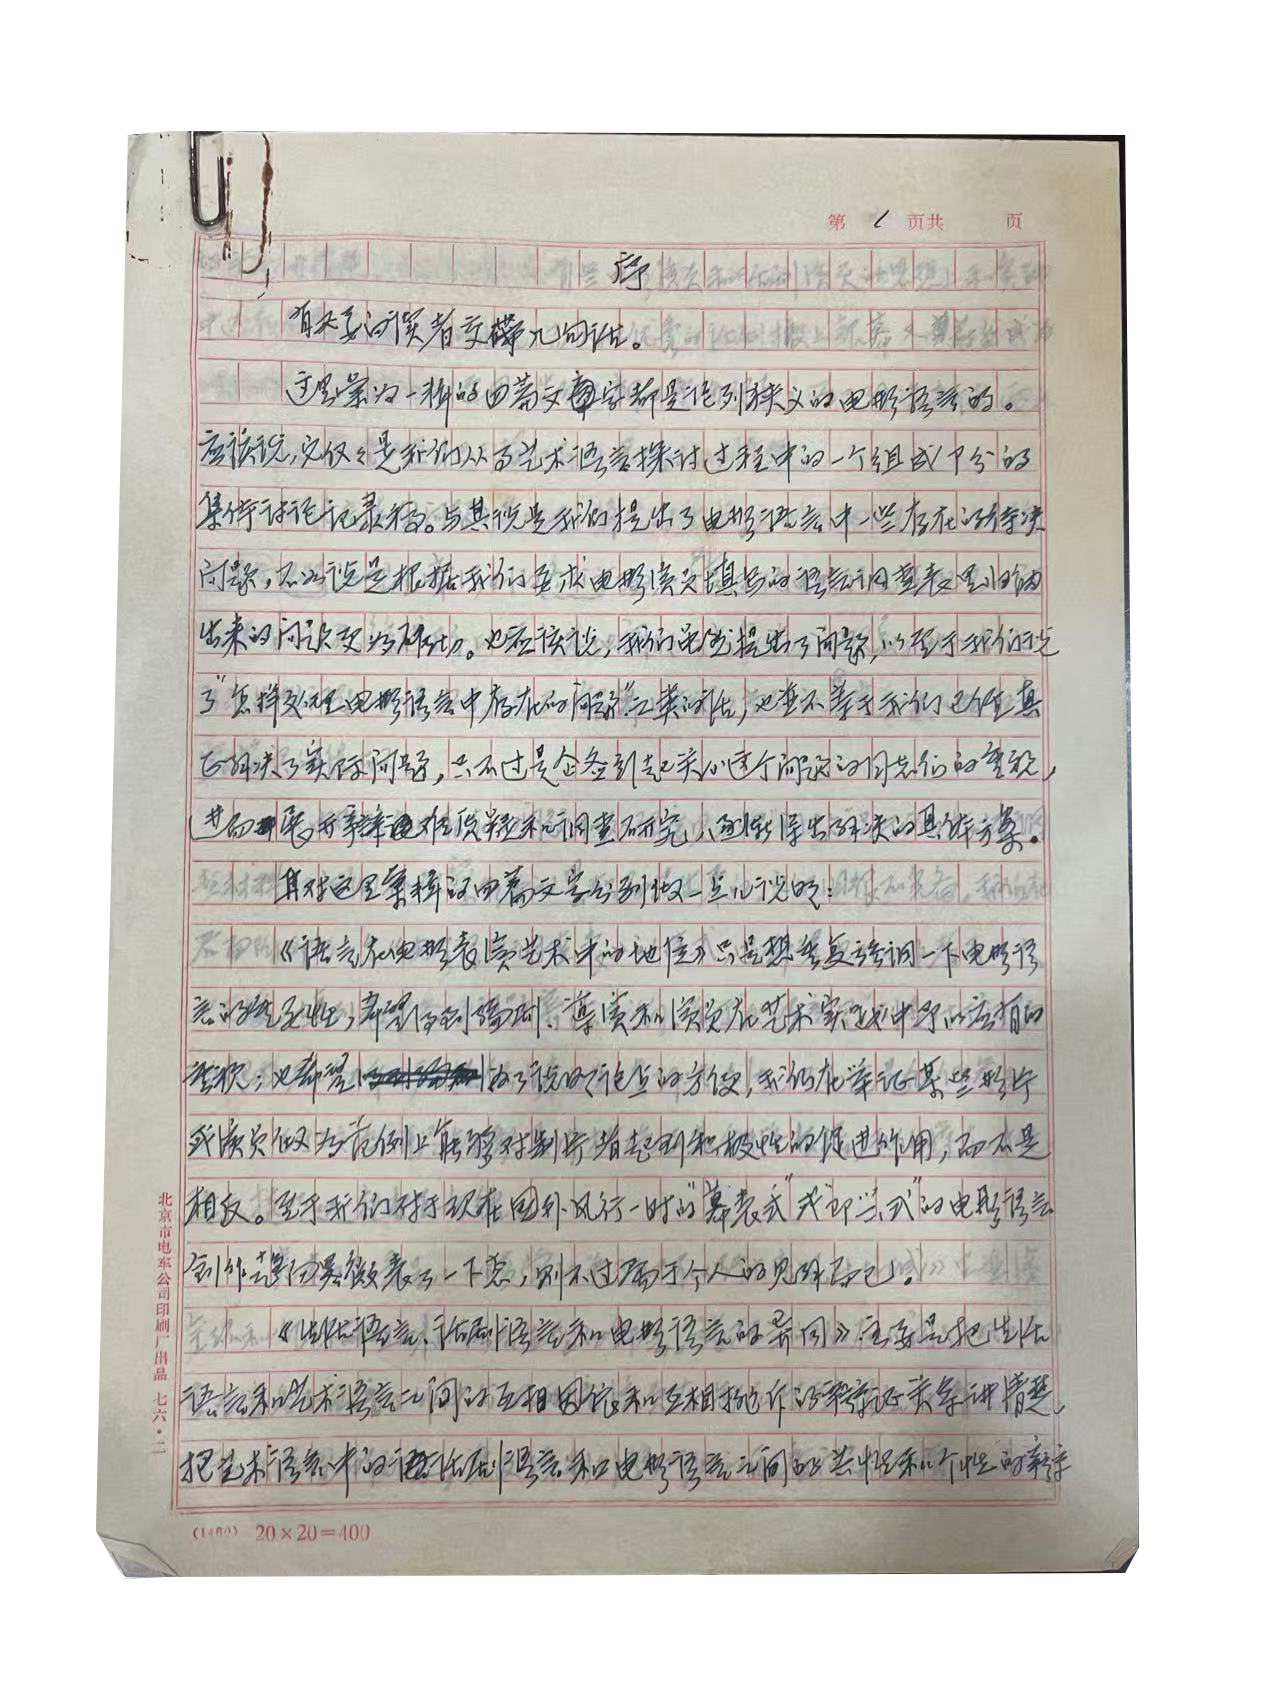 第 1 页共 页
序
有必要向读者交带几句话。
这里集为一辑的四篇文字都是论列狭义的电影语言的。
应该说,它仅仅是我们从事艺术语言探讨过程中的一个组成部分的
集体讨论记录稿。与其说是我们提出了电影语言中一些存在的待决
问题,不如说是根据我们要求电影演员填写的语言调查表里归纳
出来的问题更为确切。也应该说,我们虽然提出了问题,以至于我们说
了“怎样处理电影语言中存在的问题”之类的话,也并不等于我们已经真
正解决了实际问题,只不过是企图引起关心这个问题的同志们的重视,
进而展开辩难质疑和调查研究,逐渐得出解决的具体方案。
其对这里集辑的四篇文字分别做一点儿说明:
《语言在电影表演艺术中的地位》只是想重复强调一下电影语
言的重要性,希望得到编剧、导演和演员在艺术实践中予以应有的
重视;也希望为了说明论点的方便,我们在举证某些影片
或演员做为范例上能够对制片者起到积极性的促进作用,而不是
相反。至于我们对于现在国外风行一时的“幕表式”或“即兴式”的电影语言
创作 略微表了一下态,则不过属于个人的见解而已。
《生活语言、话剧语言和电影语言的异同》主要是把生活
语言和艺术语言之间的互相因依和互相 作的辩证关系讲清楚,
把艺术语言中的话剧语言和电影语言之间的共性和个性的辩证
北京市电车公司印刷厂出品 七六·二
(1480) 20×20=400